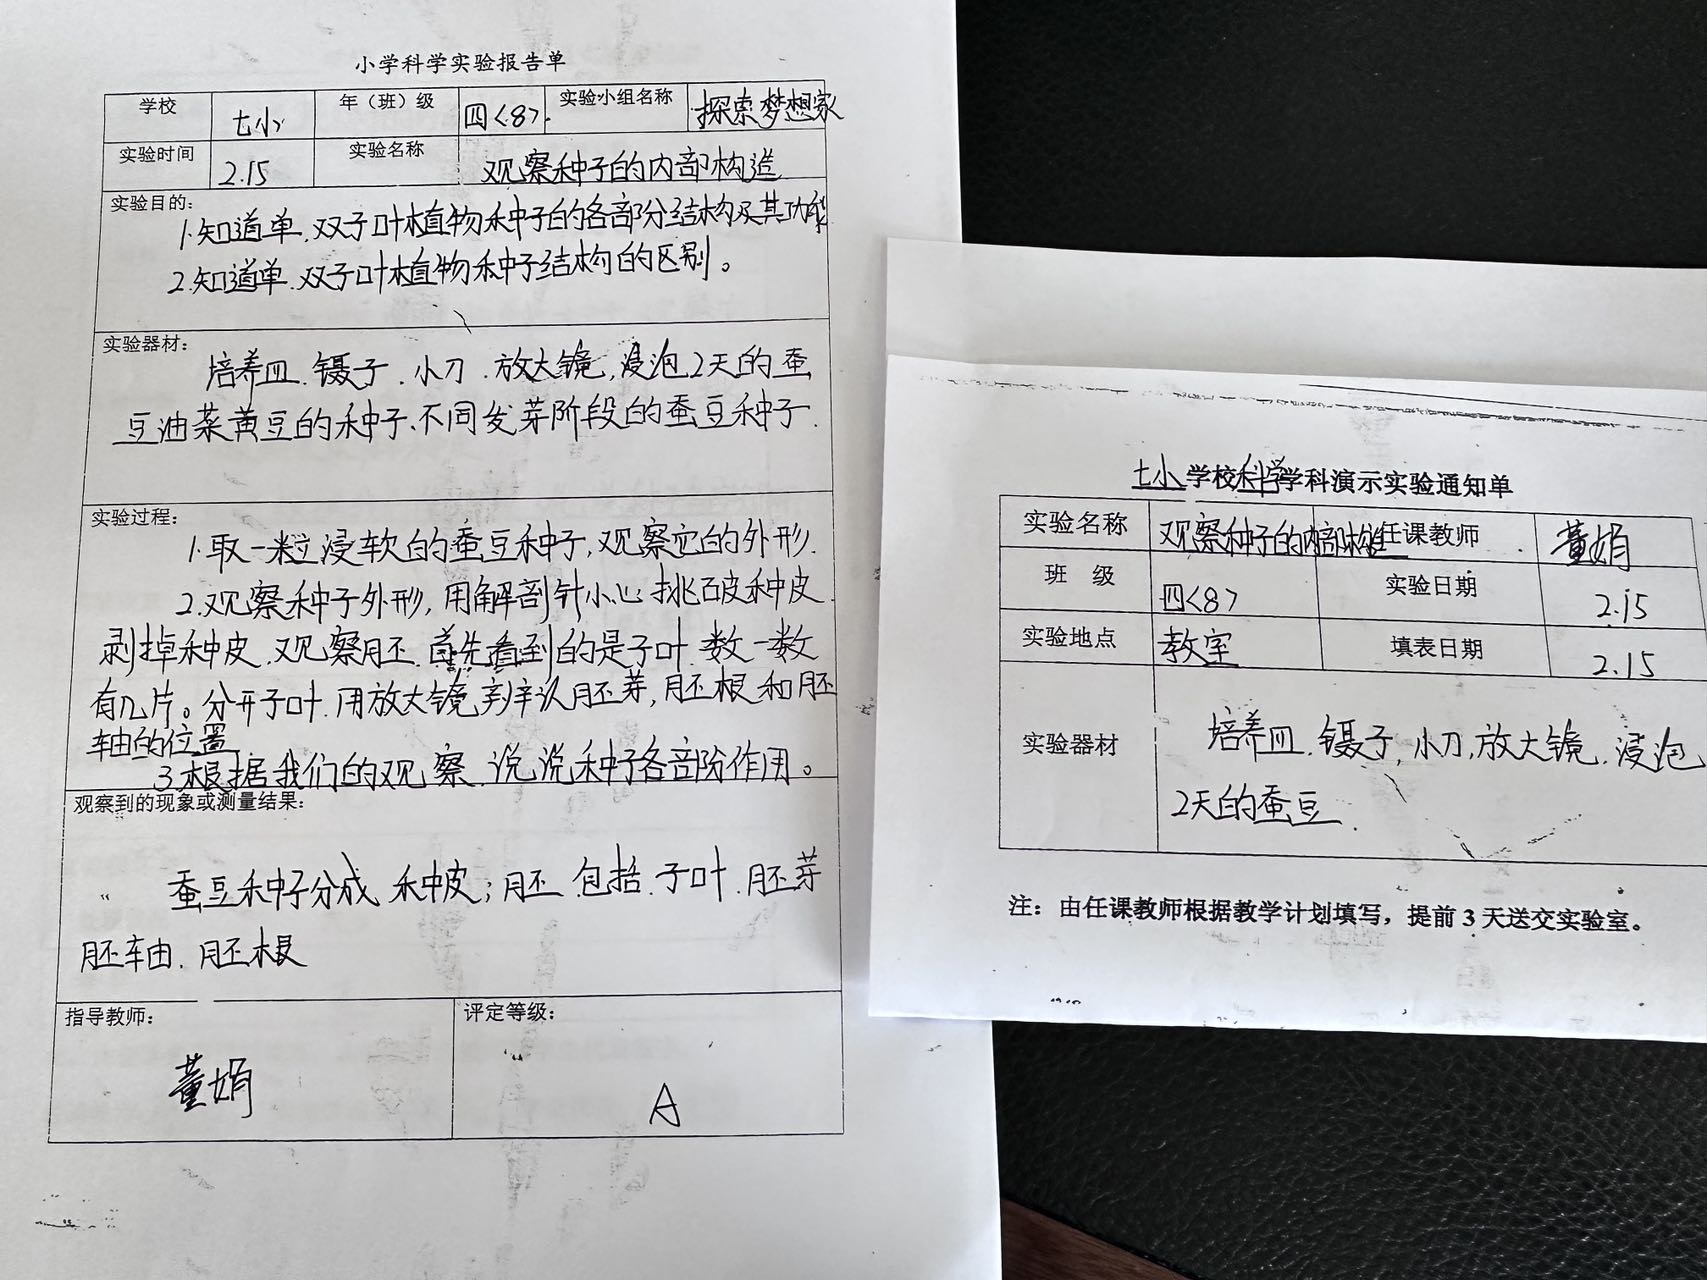 小学科学实验报告单
学校 七小 年（班）级 四<8>. 实验小组名称 探索梦想家
实验时间 2.15 实验名称 观察种子的内部构造
实验目的：
1.知道单.双子叶植物种子的各部分结构及其功能
2.知道单.双子叶植物种子结构的区别。
实验器材：
培养皿.镊子.小刀.放大镜,浸泡2天的蚕
豆油菜黄豆的种子、不同发芽阶段的蚕豆种子.
实验过程：
1.取一粒浸软的蚕豆种子,观察它的外形.
2.观察种子外形,用解剖针小心挑破种皮.
剥掉种皮.观察胚.首先看到的是子叶.数一数
有几片。分开子叶.用放大镜辨认胚芽,胚根和胚
轴的位置
3.根据我们的观察.说说种子各部阶作用。
观察到的现象或测量结果：
蚕豆种子分成 种皮;胚 包括.子叶.胚芽
胚轴.胚根
指导教师： 评定等级：
董娟 A
七小学校科学学科演示实验通知单
实验名称 观察种子的内部构造 任课教师 董娟
班 级 四<8> 实验日期 2.15
实验地点 教室 填表日期 2.15
实验器材 培养皿.镊子,小刀,放大镜.浸泡
2天的蚕豆.
注：由任课教师根据教学计划填写，提前 3 天送交实验室。